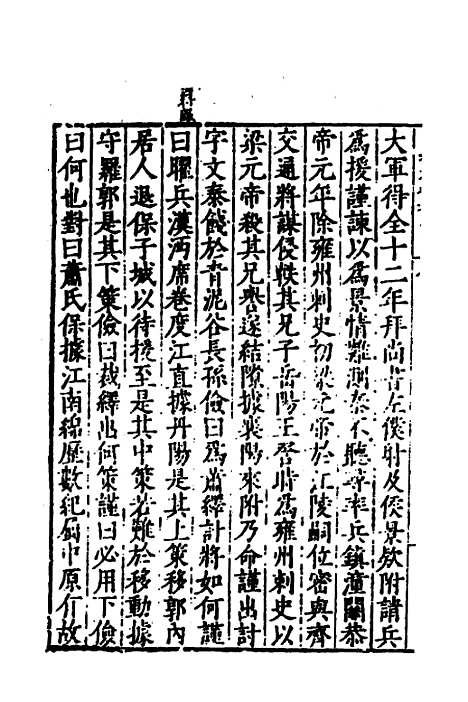 大軍得全十二年拜尚書左僕射及侯景欵附請兵
爲援謹諫以爲景情難測泰不聽尋率兵鎮潼關恭
帝元年除雍州刺史初梁元帝於江陵嗣位密與齊
交通將謀侵軼其兄子岳陽王詧時爲雍州刺史以
梁元帝殺其兄譽遂結隙據襄陽來附乃命謹出討
宇文泰餞於青泥谷長孫儉曰爲蕭繹計將如何謹
曰耀兵漢沔席卷度江直據丹陽是其上策移郭內
居人退保子城以待援至是其中策若難於移動據
守羅郭是其下策儉曰裁繹出何策謹曰必用下儉
曰何也對曰蕭氏保據江南綿歷數紀屬中原有故